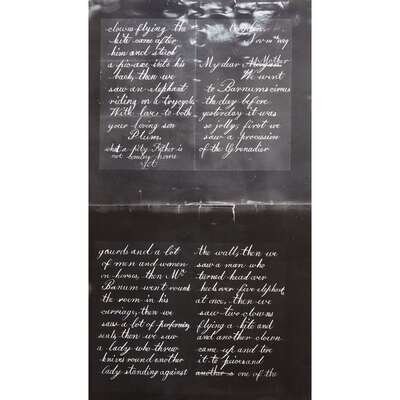 My dear Mother
We went
to Barnums circus
the day before
yesterday it was
so jolly, first we
saw a procession
of the Grenadier
gourds and a lot
of men and women
on horses, then Mr
Barnum went round
the room in his
carriage, then we
saw a lot of performing
seals, then we saw
a lady who threw
knives round another
lady standing against
the wall, then we
saw a man who
turned head over
heels over five elephants
at once, then we
saw two clowns
flying a kite and
and another clown
came up and tore
it to pieces and
another is one of the
clowns flying the
kite came after
him and stuck
a pic-axe into his
back, then we
saw an elephant
riding on a trycycle
With love to both
your loving son
Plum.
what a pity Father is
not coming home
yet.